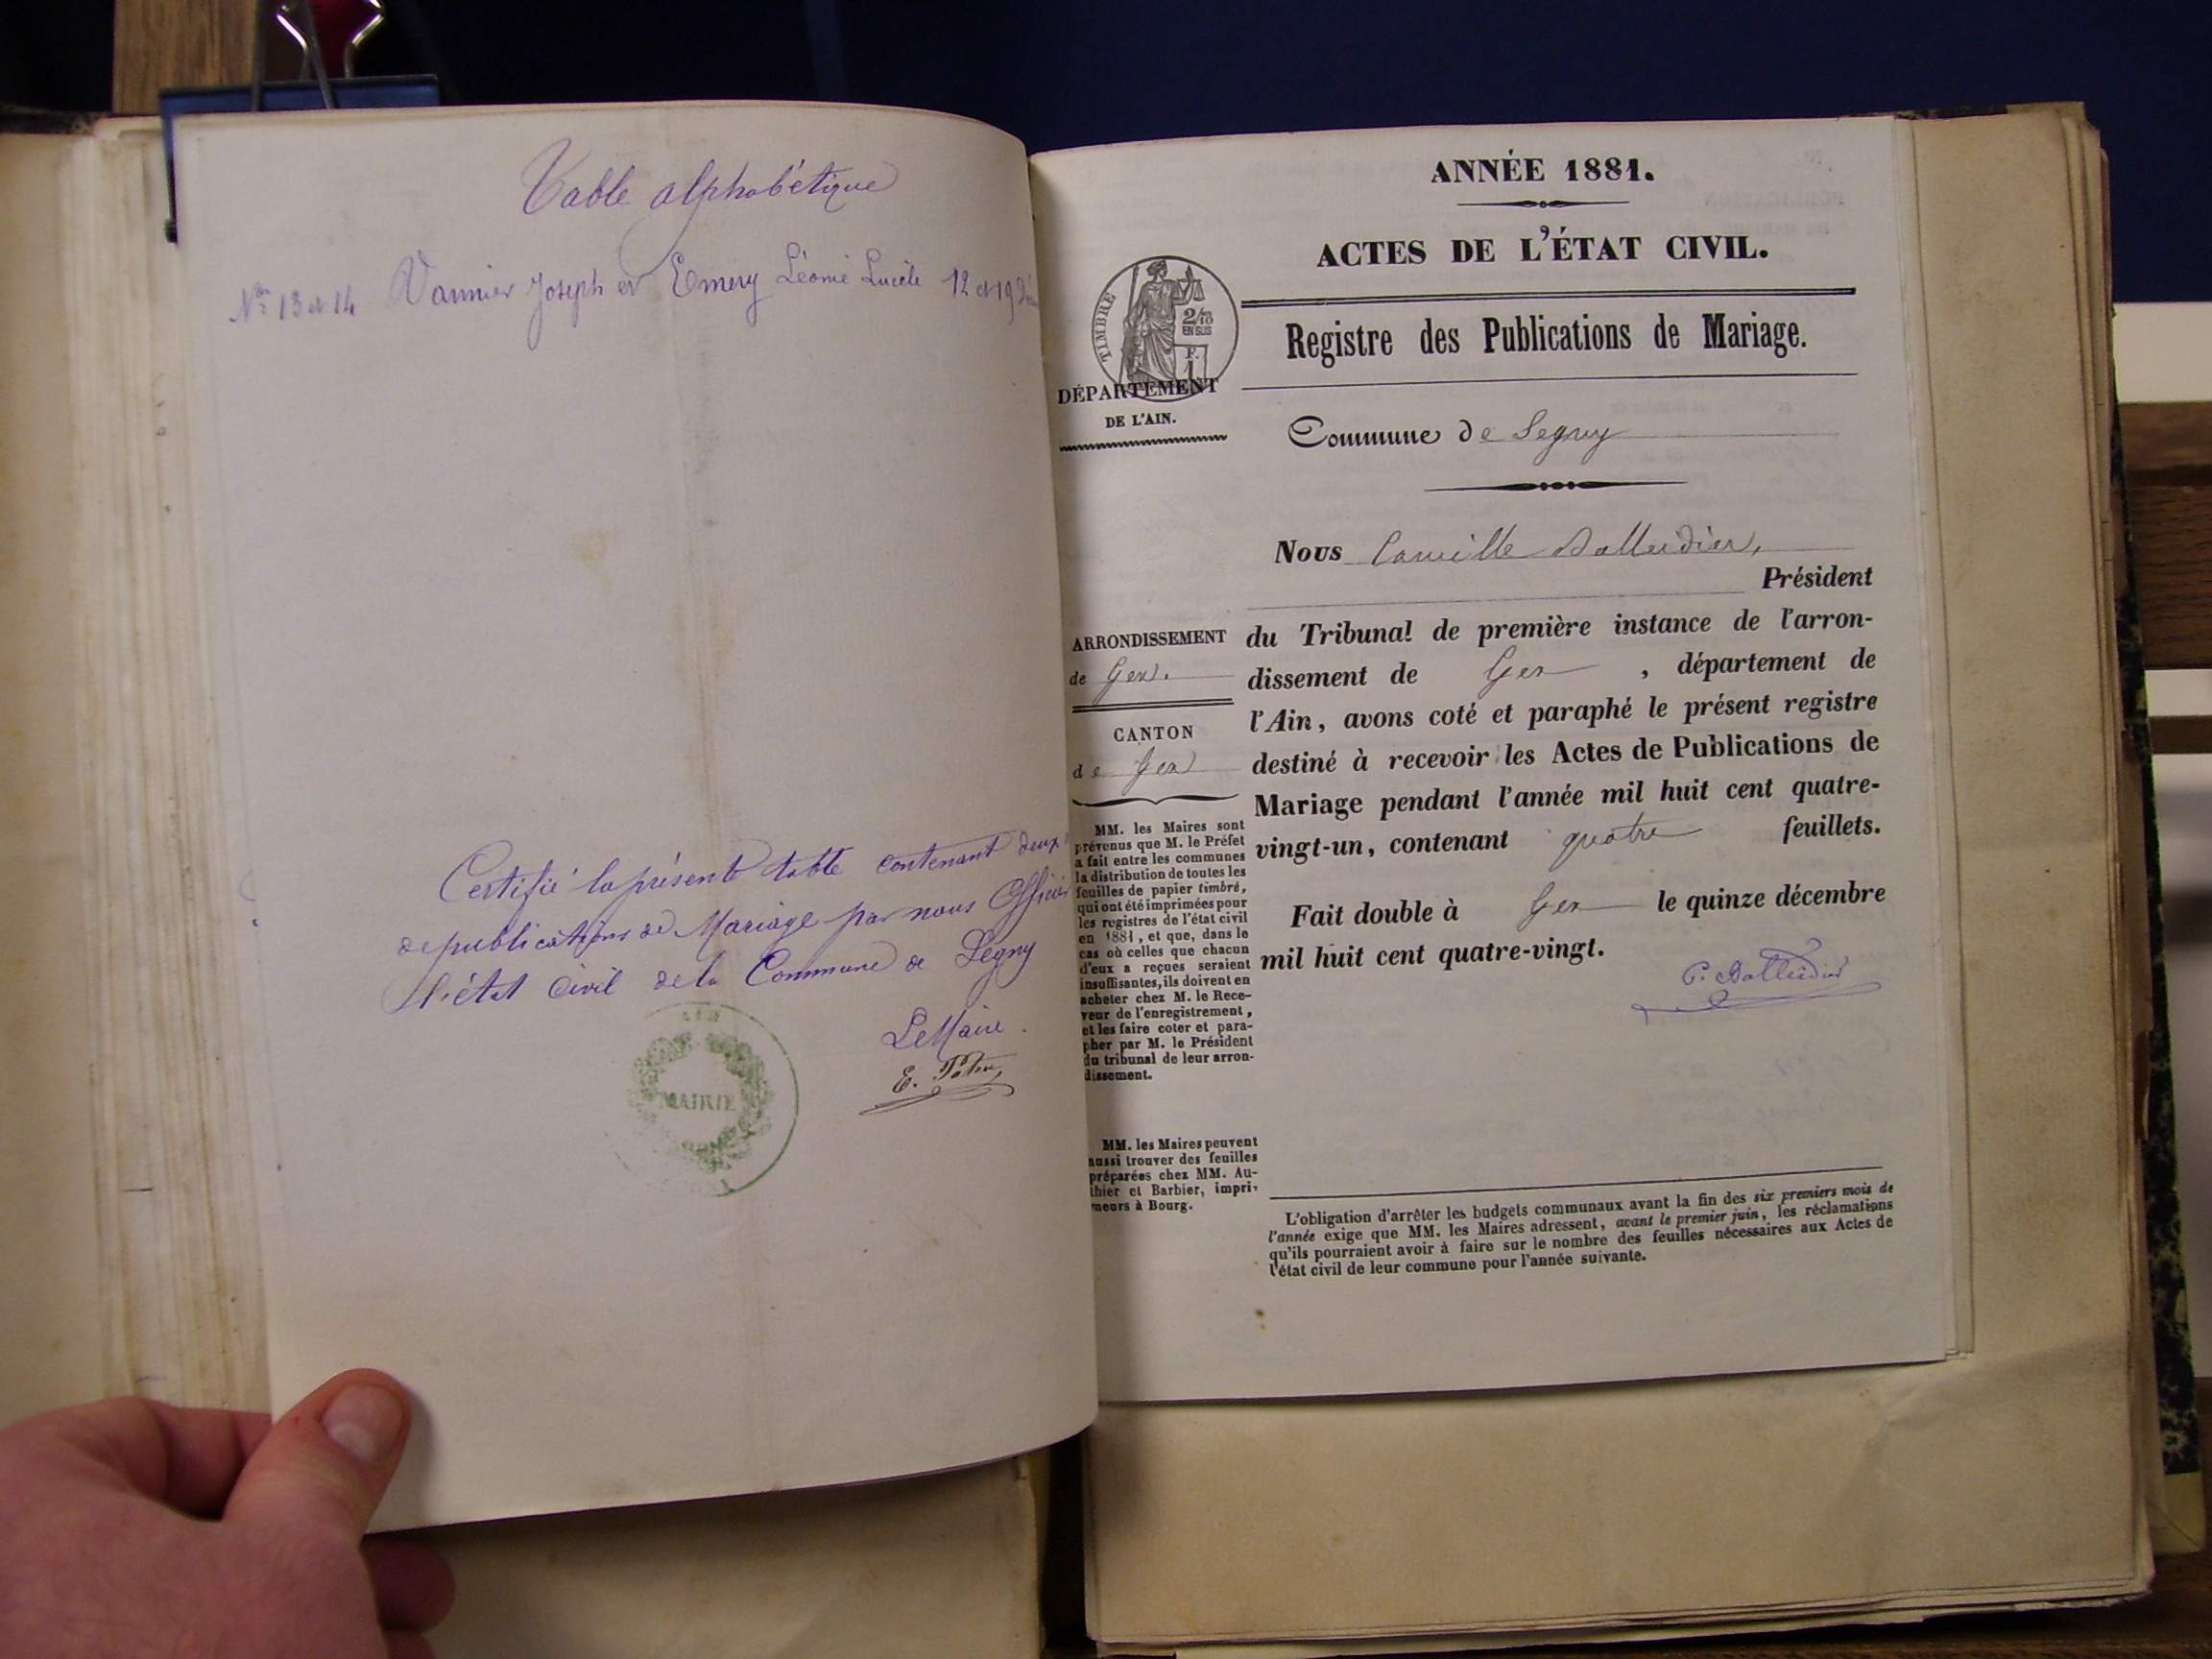 Table alphabétique
Nos 13 et 14 Vannier Joseph et Emery Léonie Lucile 12 et 19
Certifié la présente table contenant deux
de publications de Mariage par nous Officier
l'état civil de la Commune de Segny
Le Maire.
MAIRIE
ANNÉE 1881.
ACTES DE L'ÉTAT CIVIL.
TIMBRE
2/10
EN SUS
F.
1
DÉPARTEMENT
DE L'AIN.
Registre des Publications de Mariage.
Commune de Segny
ARRONDISSEMENT
de Gex.
CANTON
de Gex
MM. les Maires sont
prévenus que M. le Préfet
a fait entre les communes
la distribution de toutes les
feuilles de papier timbré,
qui ont été imprimées pour
les registres de l'état civil
en 1881, et que, dans le
cas où celles que chacun
d'eux a reçues seraient
insuffisantes, ils doivent en
acheter chez M. le Rece-
veur de l'enregistrement,
et les faire coter et para-
pher par M. le Président
du tribunal de leur arron-
dissement.
MM. les Maires peuvent
aussi trouver des feuilles
préparées chez MM. Au-
thier et Barbier, impri-
meurs à Bourg.
Nous Camille Balleidier,
Président
du Tribunal de première instance de l'arron-
dissement de Gex, département de
l'Ain, avons coté et paraphé le présent registre
destiné à recevoir les Actes de Publications de
Mariage pendant l'année mil huit cent quatre-
vingt-un, contenant quatre feuillets.
Fait double à Gex le quinze décembre
mil huit cent quatre-vingt.
C. Balleidier
L'obligation d'arrêter les budgets communaux avant la fin des six premiers mois de
l'année exige que MM. les Maires adressent, avant le premier juin, les réclamations
qu'ils pourraient avoir à faire sur le nombre des feuilles nécessaires aux Actes de
l'état civil de leur commune pour l'année suivante.